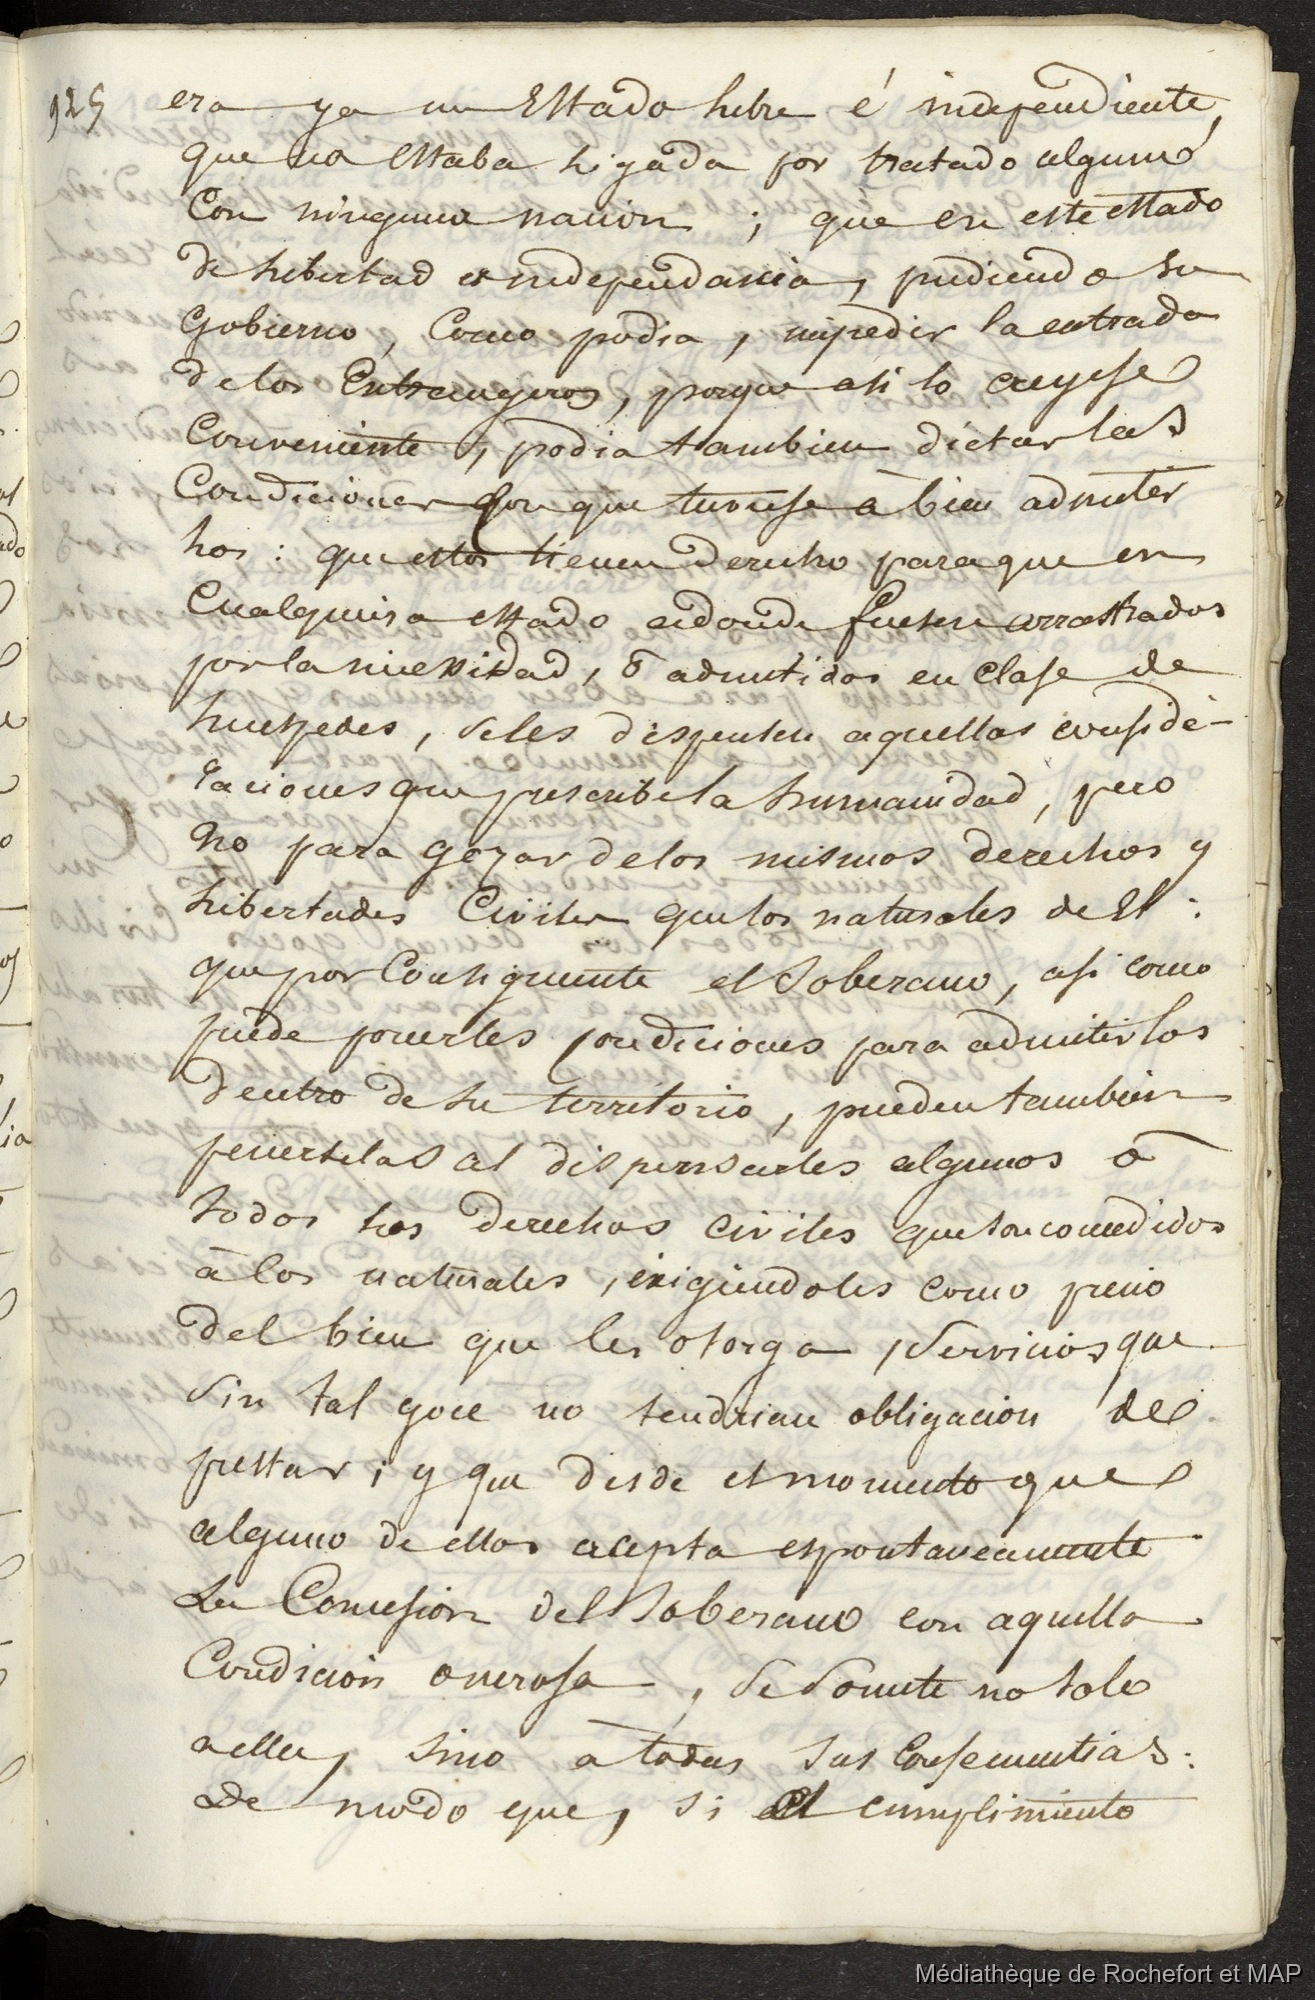 925
era ya un Estado libre é independiente,
que no estaba ligada por tratado alguno
con ninguna nacion ; que en este estado
de libertad e independancia, pudiendo su
Gobierno, como podia, impedir la entrada
de los Entrangeros, porque asi lo creyese
Conveniente, podia tambien dictar las
Condiciones con que tuviese à bien admitir
los : que estos tienen derecho para que en
Cualquiera estado adonde fuesen arrastrados
por la necessidad, ò admitidos en clase de
huespedes, se les dispensen aquellas conside-
raciones que prescribe la humanidad, pero
no para gozar de los mismos derechos y
libertades Civiles que los naturales de El :
que por Consiguiente el Soberano, asi como
puede ponerles condiciones para admitirlos
dentro de su territorio, pueden tambien
ponerselas al dispensarles algunos ò
todos los derechos civiles que son concedidos
à los naturales, exigiendoles como precio
del bien que les otorga, servicios que
sin tal goce no tendrian obligacion de
prestar ; y que desde el momento que
alguno de ellos acepta espontaneamente
la Concesion del Soberano con aquella
Condicion onerosa, se somete no solo
a ella, sino à todas sus Consecuentias :
de modo que, si el cumplimiento
Médiathèque de Rochefort et MAP